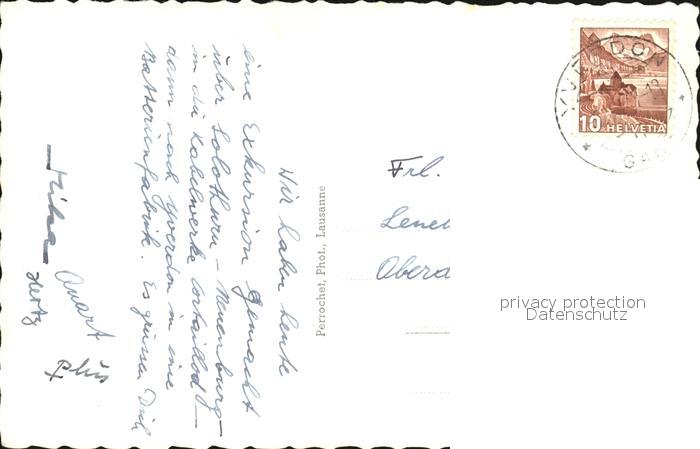 Wir haben heute
eine Exkursion gemacht
über Solothurn – Neuenburg –
in die Kabelwerke Cortaillod –
dann nach Yverdon in eine
Batterienfabrik. Es grüssen Dich
Quart
Hertz
Plus
Perrochet, Phot., Lausanne
Frl.
Lene
Obera
10 HELVETIA
YVERDON
GARE
privacy protection
Datenschutz